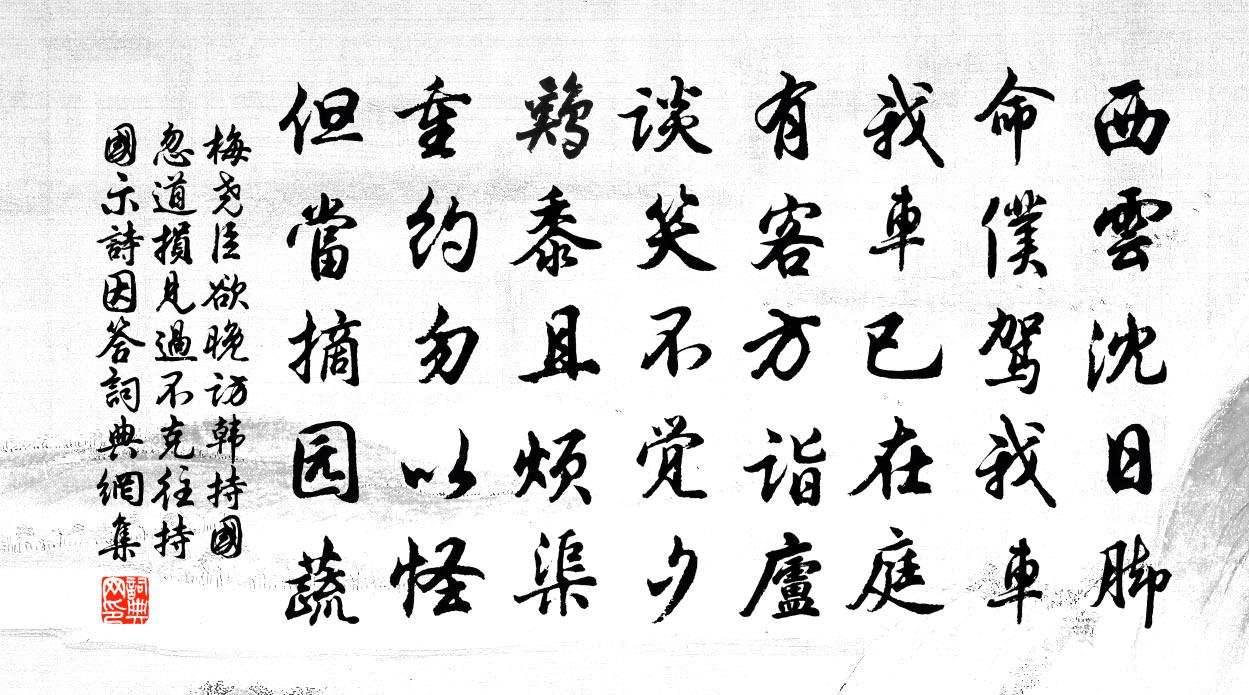 西雲沈日脚
命僕駕我車
我車已在庭
有客方诣廬
谈笑不觉夕
鷄黍且烦渠
重约勿以怪
但當摘园蔬
梅尧臣欲晚访韩持國
忽道損見過不克往持
國示詩因答詞典網集
詞典网印